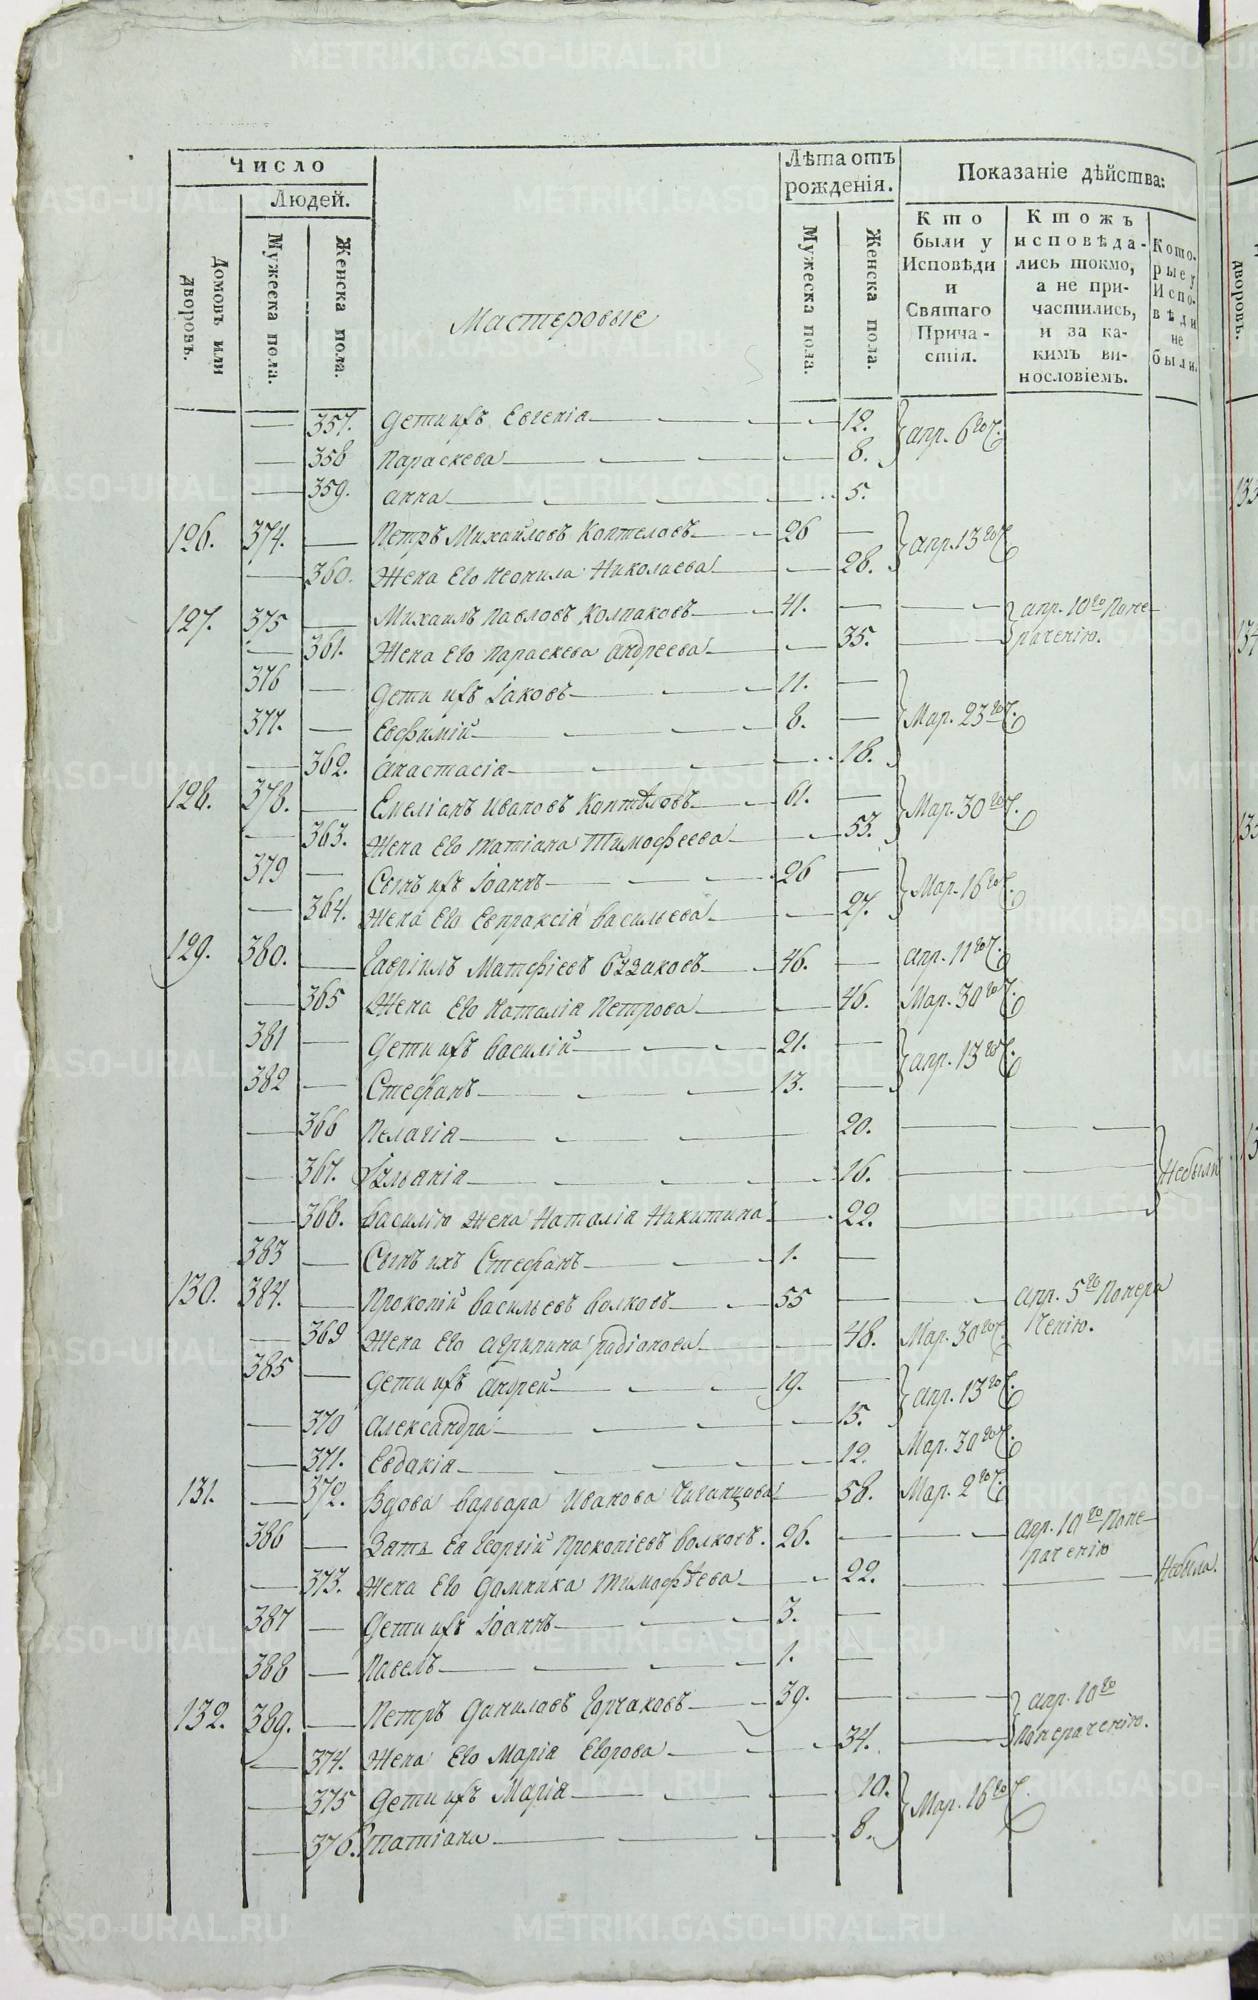 Число
Людей.
Домовъ или дворовъ.
Мужеска пола.
Женска пола.
Мастеровые
Лѣта отъ рожденія.
Мужеска пола.
Женска пола.
Показаніе дѣйства:
Кто были у Исповѣди и Святаго Причастія.
Ктожъ исповѣдались токмо, а не причастились, и за какимъ винословіемъ.
Которые у Исповѣди не были.
— 357. Дети ихъ Евгенія — 12. Апр. 6го Ч.
— 358 Параскева — 8.
— 359. Анна — 5.
126. 374. — Петръ Михайловъ Коптеловъ — 26 — Апр. 13го Ч.
— 360. Жена Его Неонила Николаева — 28.
127. 375 — Михаилъ Павловъ Колпаковъ — 41. — Апр. 10го Поне-
— 361. Жена Его Параскева Андреева — 35. раченію.
376 — Дети ихъ Іаковъ — 11. —
377. — Евфимій — 8. — Мар. 23го Ч.
— 362. Анастасія — 18.
128. 378. — Емеліанъ Ивановъ Коптѣловъ — 61. — Мар. 30го Ч.
— 363. Жена Его Татіана Тимофеева — 53.
379 — Сынъ ихъ Іоаннъ — 26 — Мар. 16го Ч.
— 364. Жена Его Евпраксія Васильева — 27.
129. 380. — Гавріилъ Матфіевъ Бузаковъ — 46. — Апр. 11го Ч.
— 365 Жена Его Наталія Петрова — 46. Мар. 30го Ч.
381 — Дети ихъ Василій — 21. — Апр. 13го Ч.
382 — Стефанъ — 13. —
— 366 Пелагія — 20. — —
— 367. Іуліанія — 16. — — Небыли
— 368. Василію Жена Наталія Никитина — 22. —
383 — Сынъ ихъ Стефанъ — 1. —
130. 384. — Прокопій Васильевъ Волковъ — 55 — — Апр. 5го Понера
— 369 Жена Его Агрипина Радіонова — 48. Мар. 30го Ч. чению.
385 — Дети ихъ Андрей — 19. — Апр. 13го Ч.
— 370 Александра — 15.
— 371. Евдакія — 12. Мар. 30го Ч.
131. — 372. Вдова Варвара Иванова Чиганцова — 58. Мар. 2го Ч.
386 — Зять Ея Георгій Прокопіевъ Волковъ. 26. — — Апр. 10го Поне-
раченію
— 373. Жена Его Домника Тимофѣева — 22. — — Небыла.
387 — Дети ихъ Іоаннъ — 3. —
388 — Павелъ — 1. —
132. 389. — Петръ Даниловъ Горчаковъ — 39. — — Апр. 10го
— 374. Жена Его Марія Егорова — 34. — Понераченію.
— 375 Дети ихъ Марія — 10. Мар. 16го Ч.
— 376. Татіана — 8.
METRIKI.GASO-URAL.RU